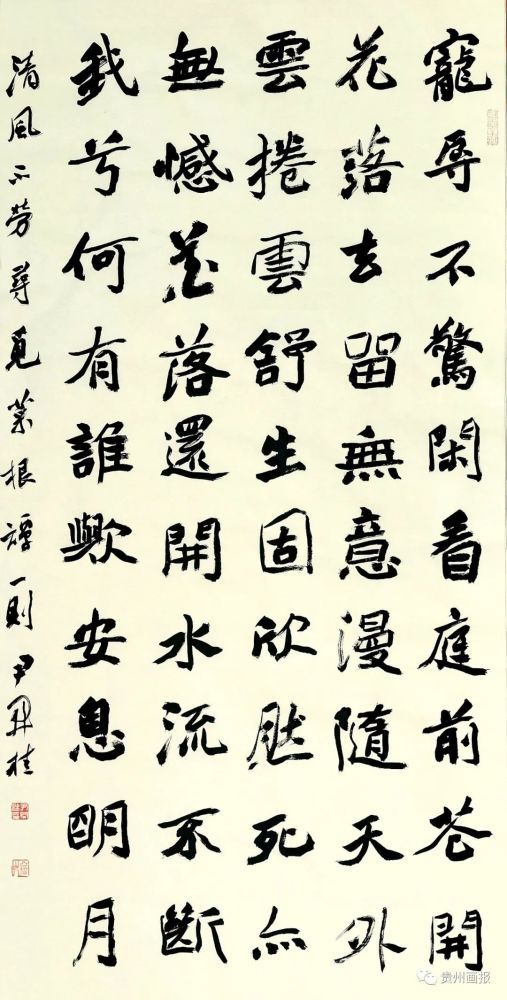 寵辱不驚閑看庭前花開
花落去留無意漫隨天外
雲捲雲舒生固欣然死亦
無憾花落還開水流不斷
我兮何有誰歟安息明月
清風不勞尋覓菜根譚一則尹開桂
贵州画报